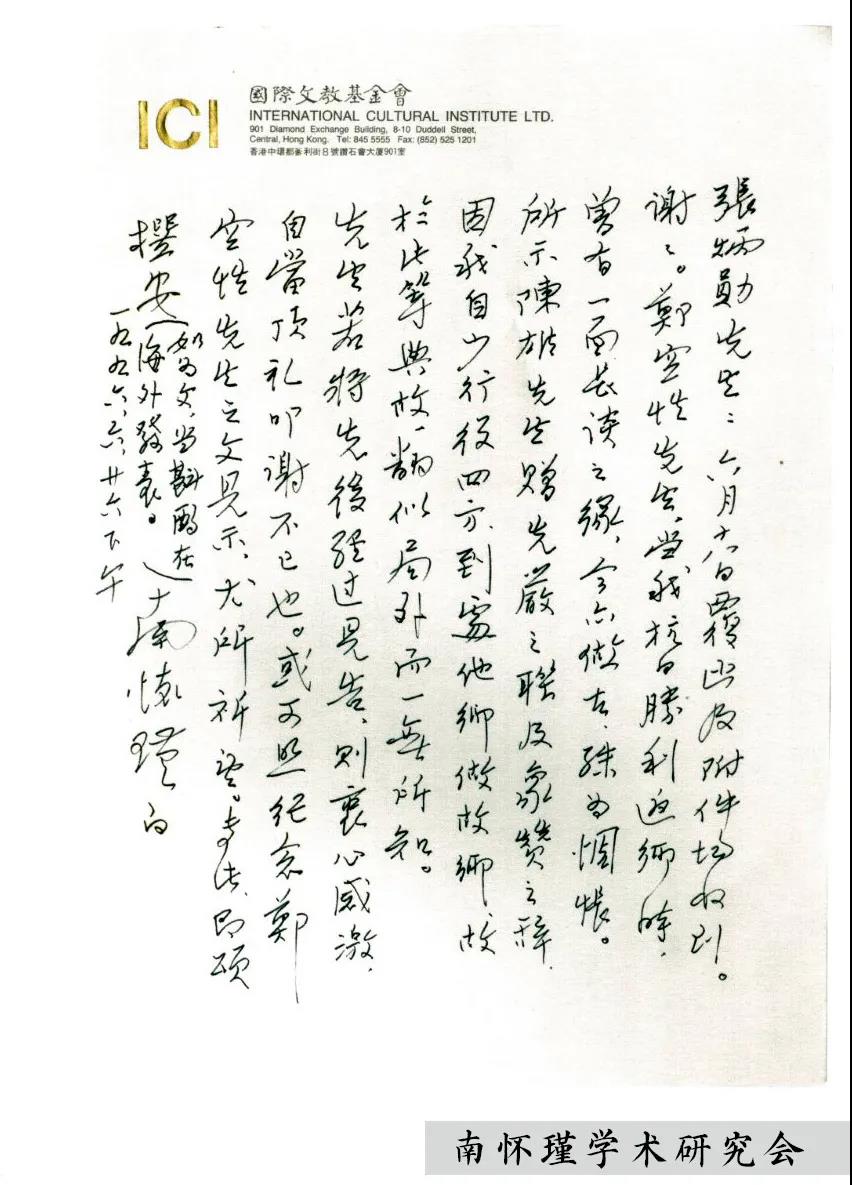 ICI
國際文教基金會
INTERNATIONAL CULTURAL INSTITUTE LTD.
901 Diamond Exchange Building, 8-10 Duddell Street,
Central, Hong Kong. Tel: 845 5555 Fax: (852) 525 1201
香港中環都爹利街8號鑽石會大廈901室
張炳勛先生：六月十八日覆函及附件均收到。
謝謝。鄭空性先生，當我抗日勝利返鄉時，
曾有一面長談之緣，今亦做古，殊為惆悵。
所示陳雄先生贈先嚴之聯及象贊之辭，
因我自少行役四方，到處他鄉做故鄉，故
於此等典故，翻似局外而一無所知。
先生若將先後經过見告，則衷心感激，
自當頂礼叩謝不已也。或可照紀念鄭
空性先生之文見示，尤所祈望。專此，即頌
撰安
（如為文，當斟酌在
海外發表。）
南懷瑾 白
一九九六、六、廿六下午
南怀瑾学术研究会